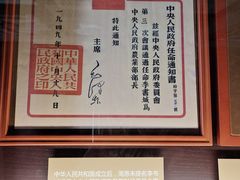 中央人民政府任命通知書
兹經中央人民政府委員會
第三次會議通過任命李書城為
中央人民政府農業部部長
特此通知
主席
一九四九年十月十九日
中華人民共和國中央人民政府之印
中华人民共和国成立后